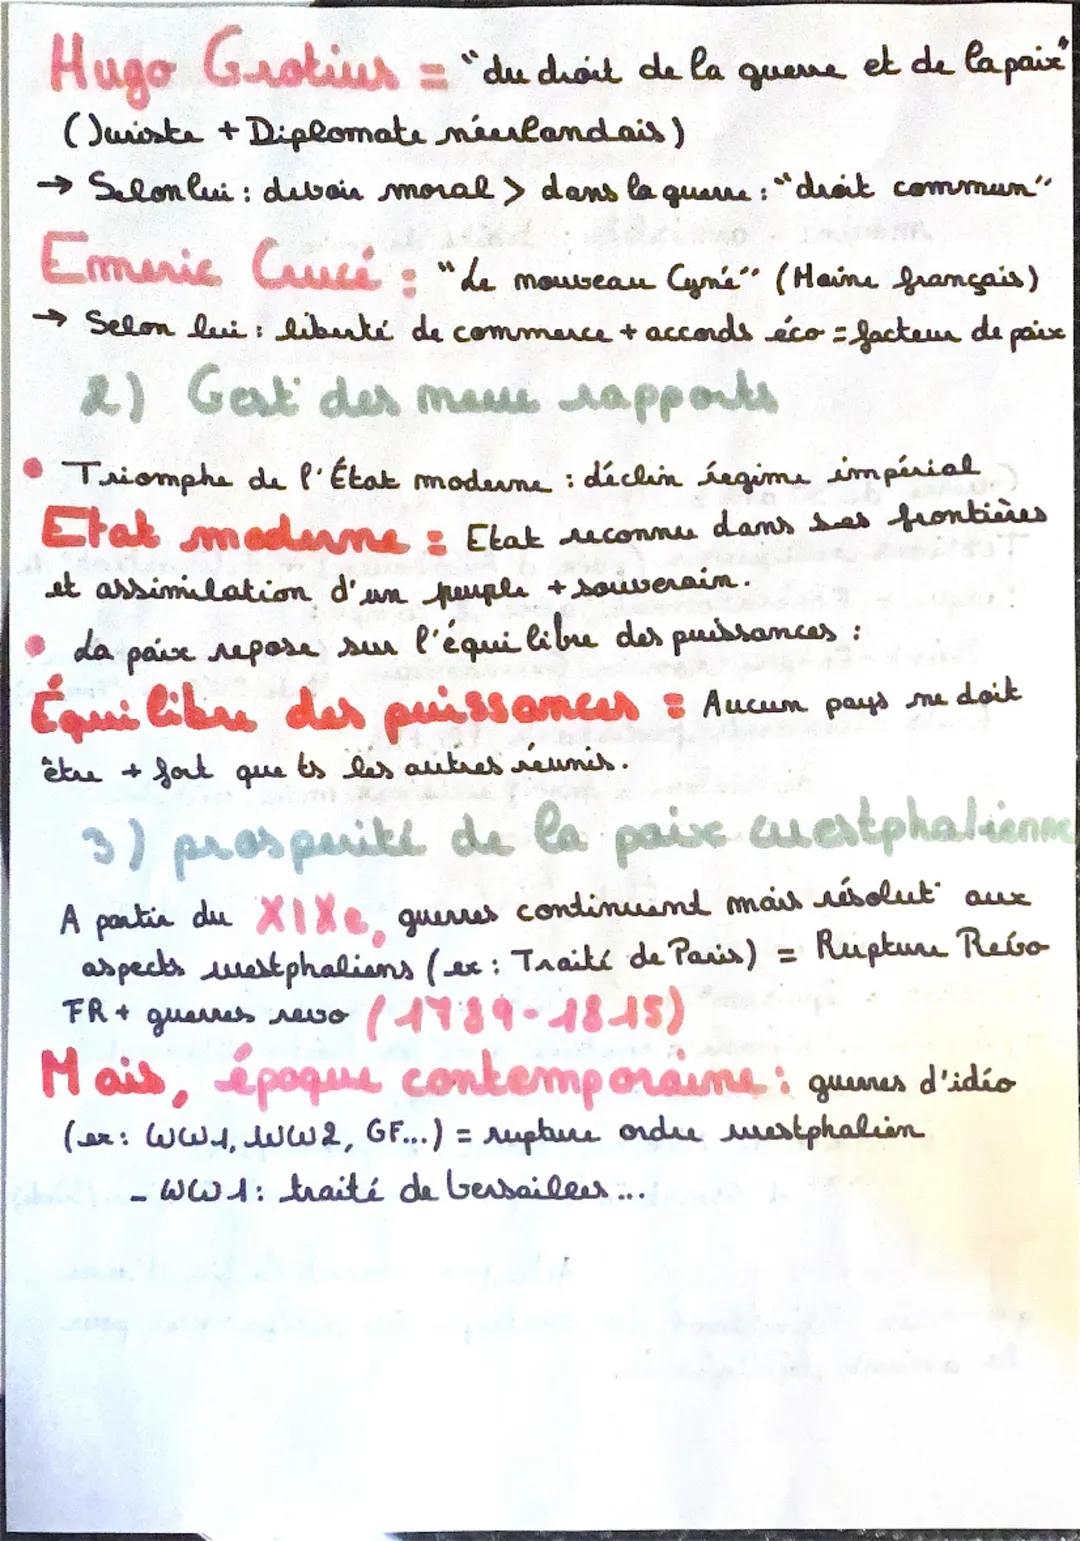 Hugo Grotius = "du droit de la guerre et de la paix"
(Juriste + Diplomate néerlandais)
→ Selon lui : devoir moral > dans la guerre : "droit commun"
Emeric Crucé : "Le nouveau Cyné" (Moine français)
→ Selon lui : liberté de commerce + accords éco = facteur de paix
2) Gest° des rapports
• Triomphe de l'État moderne : déclin régime impérial
Etat moderne = Etat reconnu dans ses frontières
et assimilation d'un peuple + souverain.
• La paix repose sur l'équilibre des puissances :
Équilibre des puissances = Aucun pays ne doit
être + fort que ts les autres réunis.
3) prospérité de la paix westphalienne
A partir du XIXe, guerres continuent mais résolut° aux
aspects westphaliens (ex : Traité de Paris) = Rupture Révo
FR + guerres revo (1789-1815)
Mais, époque contemporaine : guerres d'idéo
(ex : WW1, WW2, GF...) = rupture ordre westphalien
- WW1 : traité de Versailles...